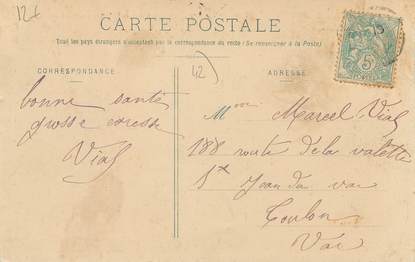 12+
CARTE POSTALE
Tous les pays étrangers n'acceptent pas la correspondance au recto (Se renseigner à la Poste)
CORRESPONDANCE
42
ADRESSE
bonne santé
grosse caresse
Vial
Mme Marcel Vial
188 route de la valette
St Jean du var
Toulon
Var
5c
POSTES